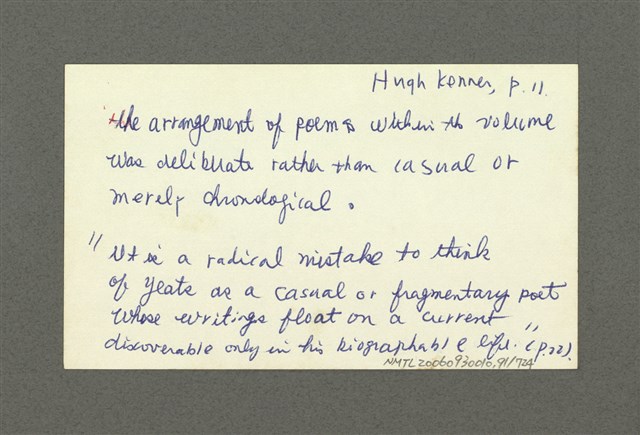 Hugh Kenner, p. 11.
the arrangement of poems within the volume
was deliberate rather than casual or
merely chronological.
" It is a radical mistake to think
of Yeats as a casual or fragmentary poet
whose writings float on a current
discoverable only in his biographable life." (p. 22).
NMTL20060930010,91/724